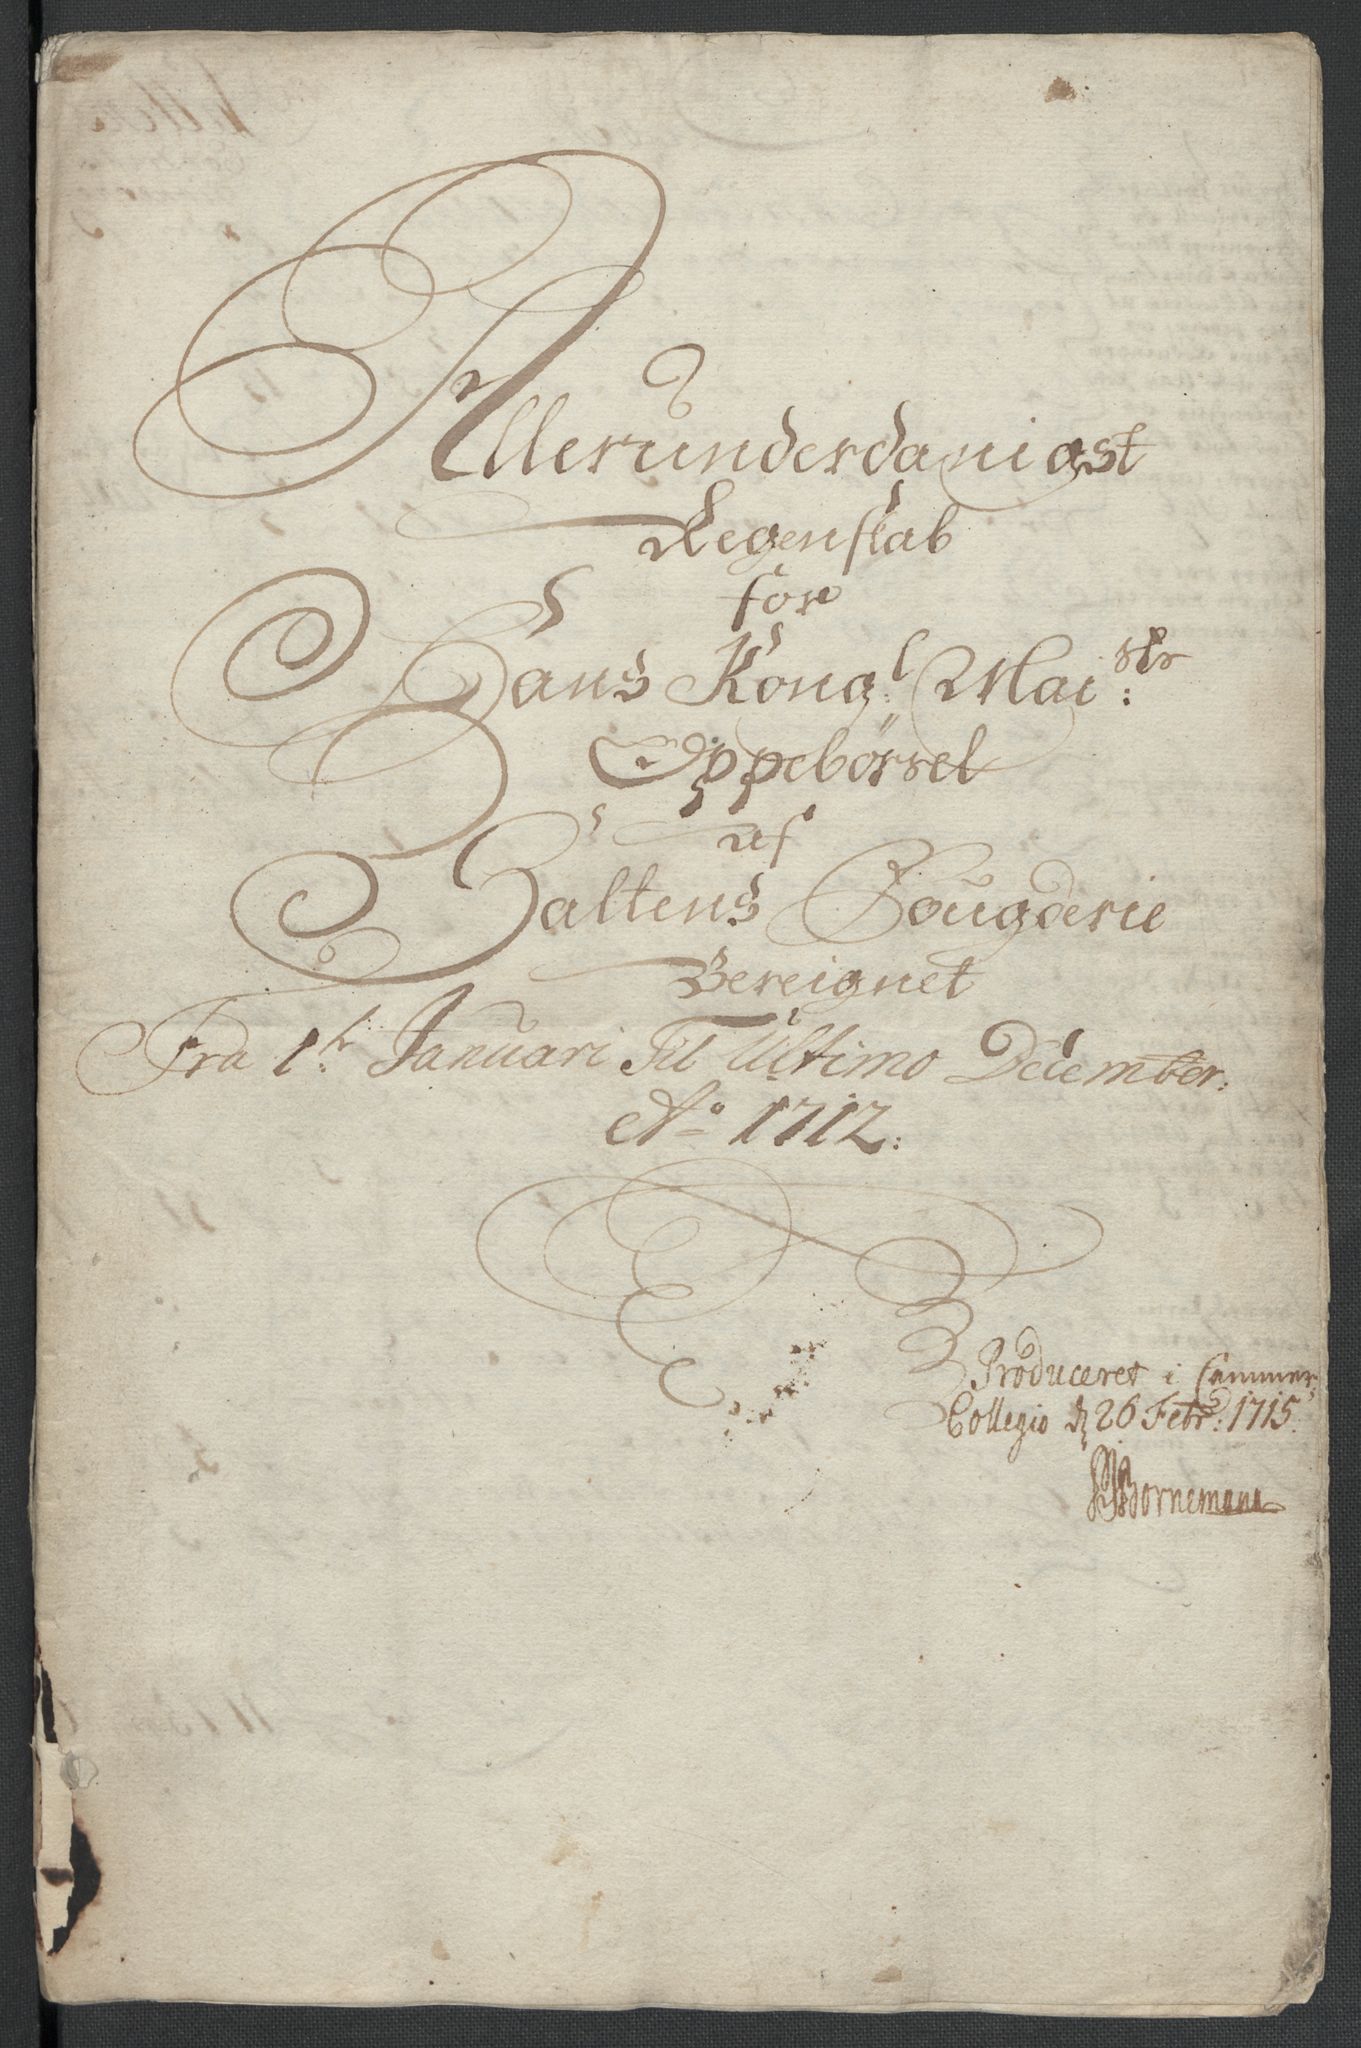 Allerunderdanigst
Regenskab
fore
Hans Kong.l Mai:sts
Oppebørsel
af
Saltens Fougderie
Bereignet
Fra 1.te Januari Til Ultimo December:
Ao 1712:
Produceret i Cammer
Collegio d 26 Febr: 1715.
Bornemann